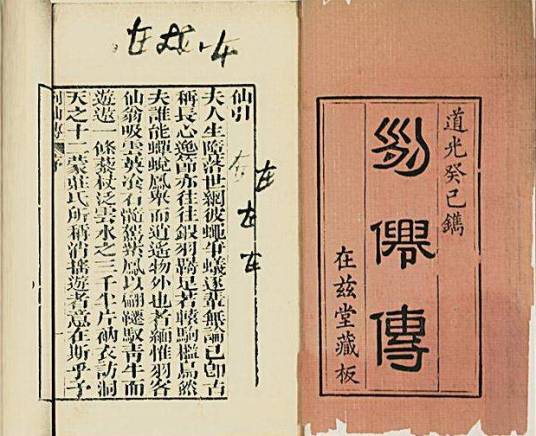 道光癸巳鐫
列僊傳
在兹堂藏板
仙引
夫人生墮落世網彼蠅爭蟻逐輩無論已卽古
稱長心逸節亦往往羽羈足若轅駒檻鳥然
夫誰能蟬蛻鳳舉而逍遙物外也者緬惟羽客
仙翁吸雲英飡石髓對鳳以翩躚馭靑牛而
遊遨一條藜杖泛雲水之三千半片衲衣訪洞
天之十二蒙莊氏所稱消搖遊者意在斯乎予
列仙傳 序
在
在
在
在